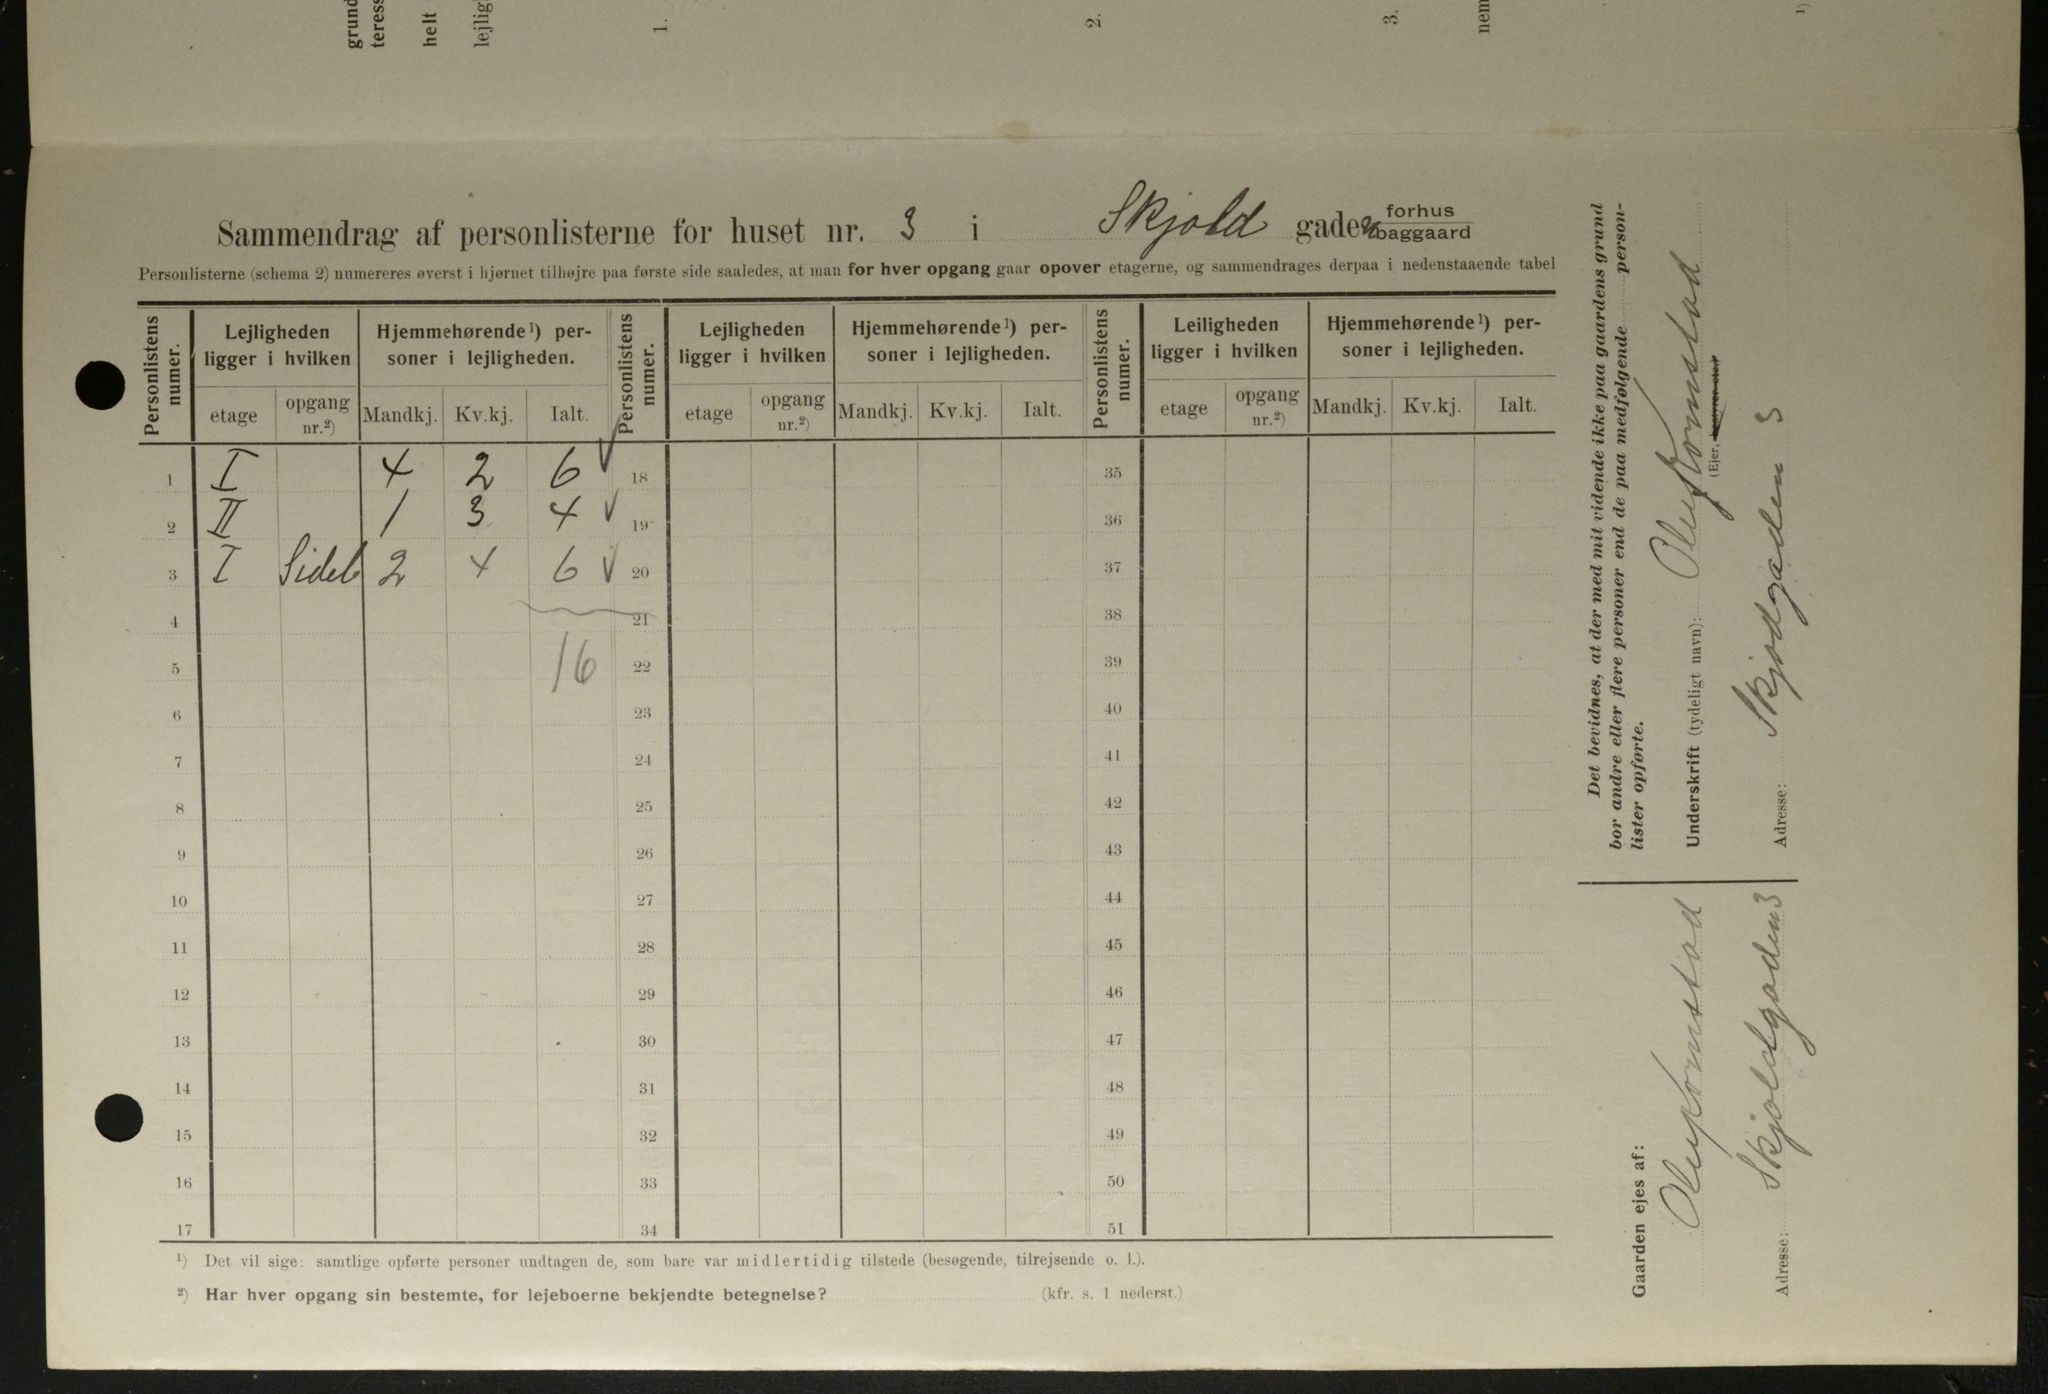 grund
teress
helt
lejlig
1.
2.
3.
nem
1)
Sammendrag af personlisterne for huset nr. 3 i Skjold gaden forhus baggaard
Personlisterne (schema 2) numereres øverst i hjørnet tilhøjre paa første side saaledes, at man for hver opgang gaar opover etagerne, og sammendrages derpaa i nedenstaaende tabel
Personlistens numer. Lejligheden ligger i hvilken Hjemmehørende¹) personer i lejligheden. Personlistens numer. Lejligheden ligger i hvilken Hjemmehørende¹) personer i lejligheden. Personlistens numer. Leiligheden ligger i hvilken Hjemmehørende¹) personer i lejligheden.
etage opgang nr.²) Mandkj. Kv.kj. Ialt. etage opgang nr.²) Mandkj. Kv.kj. Ialt. etage opgang nr.²) Mandkj. Kv.kj. Ialt.
1 I 4 2 6 ✓ 18 35
2 II 1 3 4 ✓ 19 36
3 I Sideb 2 4 6 ✓ 20 37
4 21 38
5 16 22 39
6 23 40
7 24 41
8 25 42
9 26 43
10 27 44
11 28 45
12 29 46
13 30 47
14 31 48
15 32 49
16 33 50
17 34 51
¹) Det vil sige: samtlige opførte personer undtagen de, som bare var midlertidig tilstede (besøgende, tilrejsende o. l.).
²) Har hver opgang sin bestemte, for lejeboerne bekjendte betegnelse? (kfr. s. 1 nederst.)
Det bevidnes, at der med mit vidende ikke paa gaardens grund
bor andre eller flere personer end de paa medfølgende person-
lister opførte.
Underskrift (tydeligt navn): Oluf Kornstad
(Ejer,
Adresse: Skjodgaden 3
Gaarden ejes af:
Oluf Kornstad
Adresse: Skjoldgaden 3